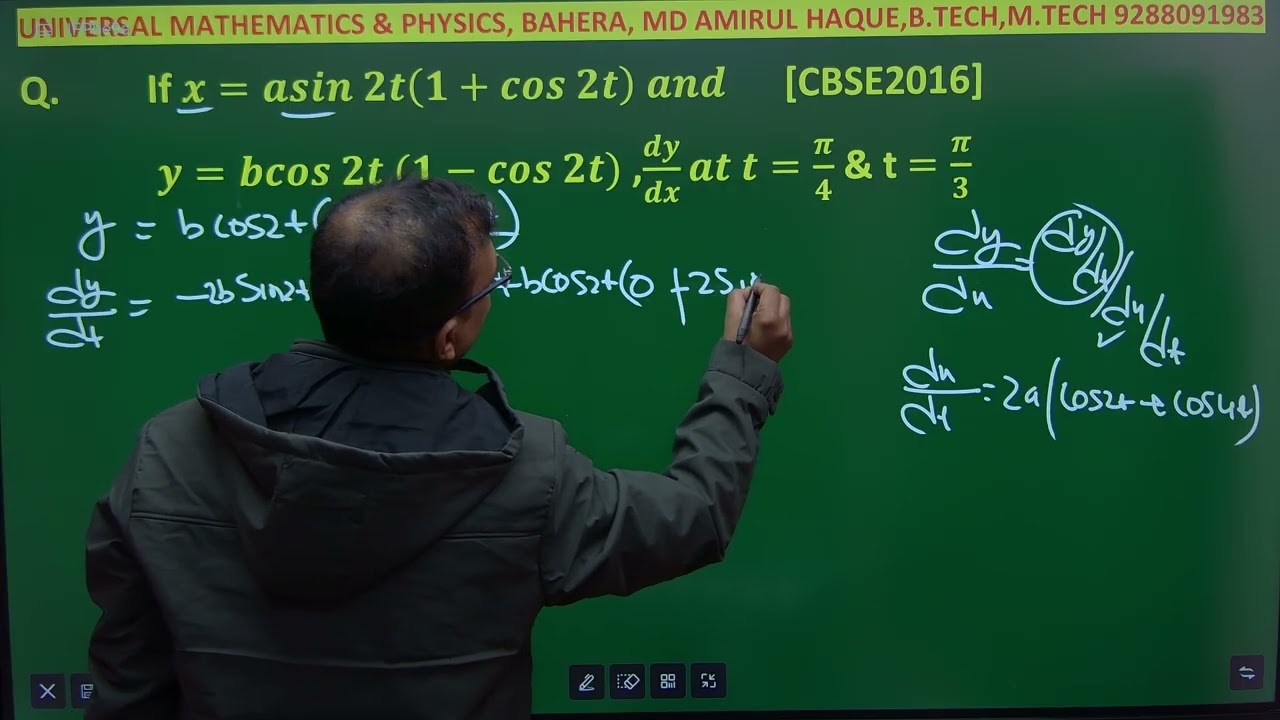 UNIVERSAL MATHEMATICS & PHYSICS, BAHERA, MD AMIRUL HAQUE,B.TECH,M.TECH 9288091983
Q. If x = asin 2t(1 + cos 2t) and [CBSE2016]
y = bcos 2t (1 − cos 2t) , dy/dx at t = π/4 & t = π/3
y = b cos2t (
)
dy/dt = −2b sin2t + bcos2t (0 + 2 S
dy/dx = dy/dt / dx/dt
dx/dt = 2a (cos2t + cos4t)